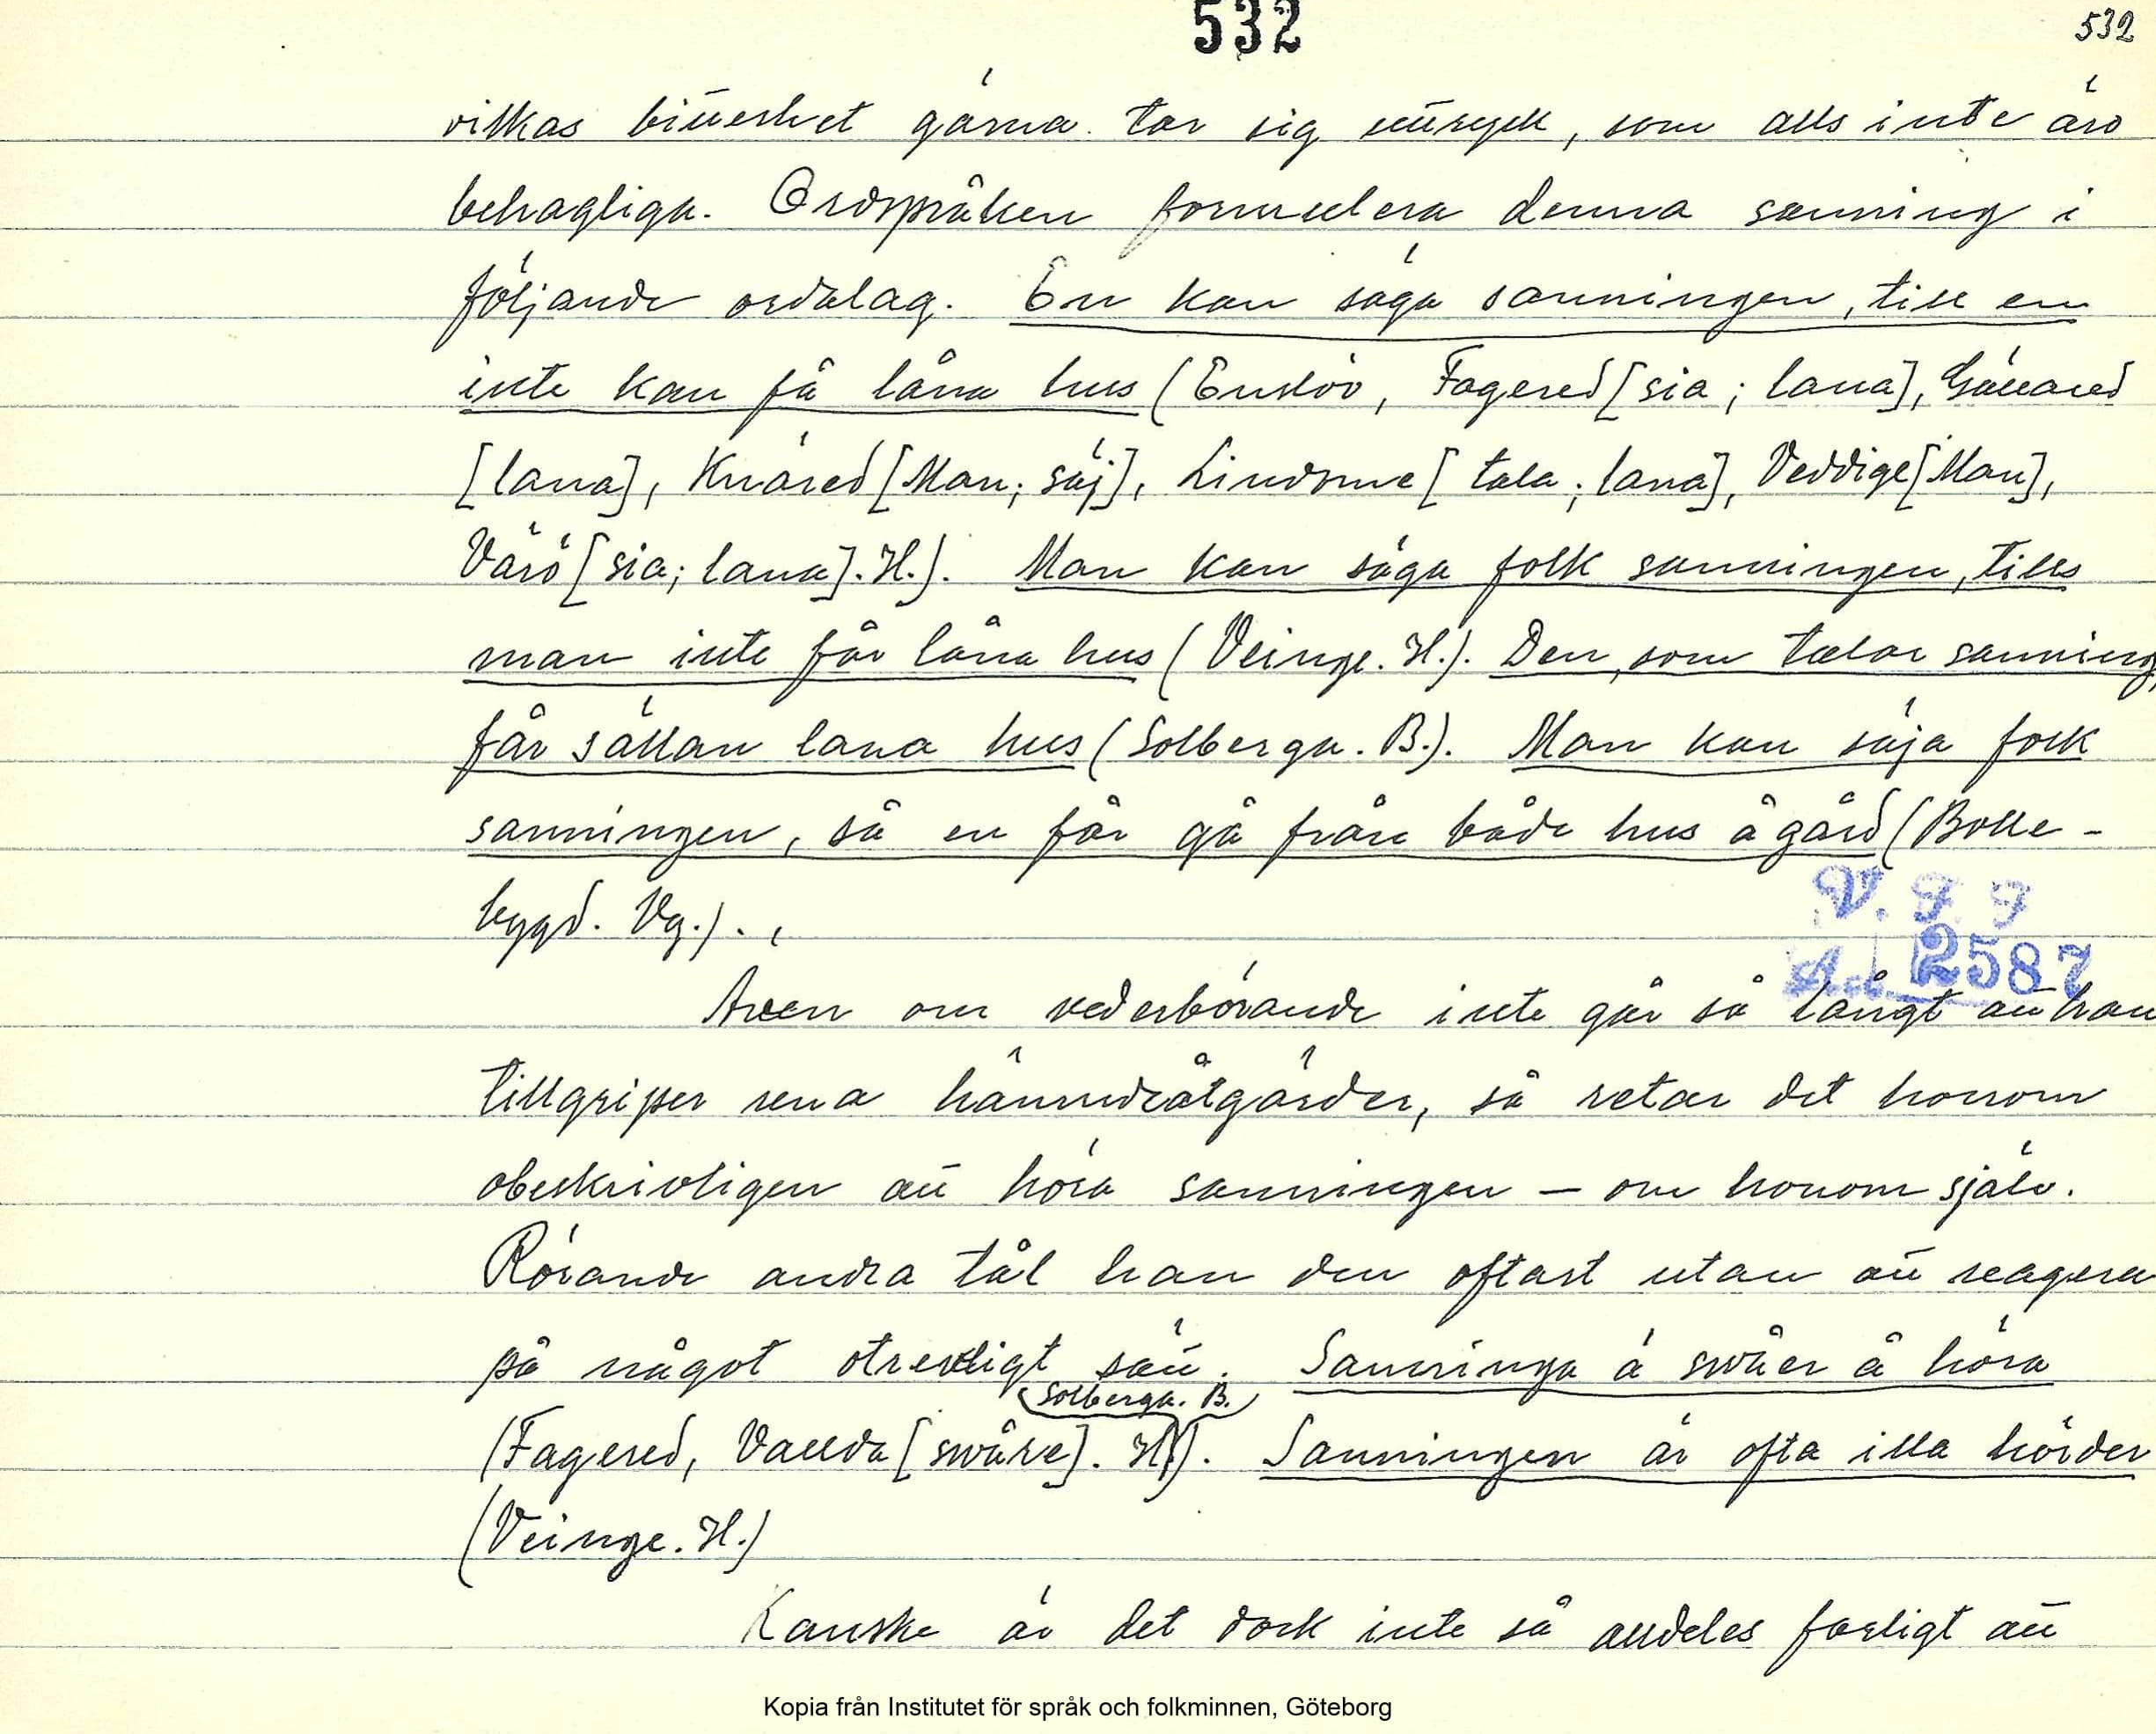 532
532
vilkas bitterhet gärna tar sig uttryck, som alls inte äro
behagliga. Ordspråken formulera denna sanning i
följande ordalag. En kan säga sanningen, till en
inte kan få låna hus (Enslöv, Fagered [sia; lana], Gällared
[lana], Knäred [Man; säj], Lindome [tala; lana], Veddige [Man],
Värö [sia; lana]. H.). Man kan säga folk sanningen, tills
man inte får låna hus (Veinge. H.). Den, som talar sanning,
får sällan lana hus (Solberga. B.). Man kan säja folk
sanningen, så en får gå från både hus å gård (Bolle-
bygd. Vg.).
V. F. F
Acc. 2587
Även om vederbörande inte går så långt att han
tillgriper rena hämndeåtgärder, så retar det honom
obeskrivligen att höra sanningen – om honom själv.
Rörande andra tål han den oftast utan att reagera
på något otrevligt sätt. Sanninga ä svåer å höra
Solberga. B.
(Fagered, Vallda [svåre]. H.). Sanningen är ofta illa hörder
(Veinge. H.)
Kanske är det dock inte så alldeles farligt att
Kopia från Institutet för språk och folkminnen, Göteborg